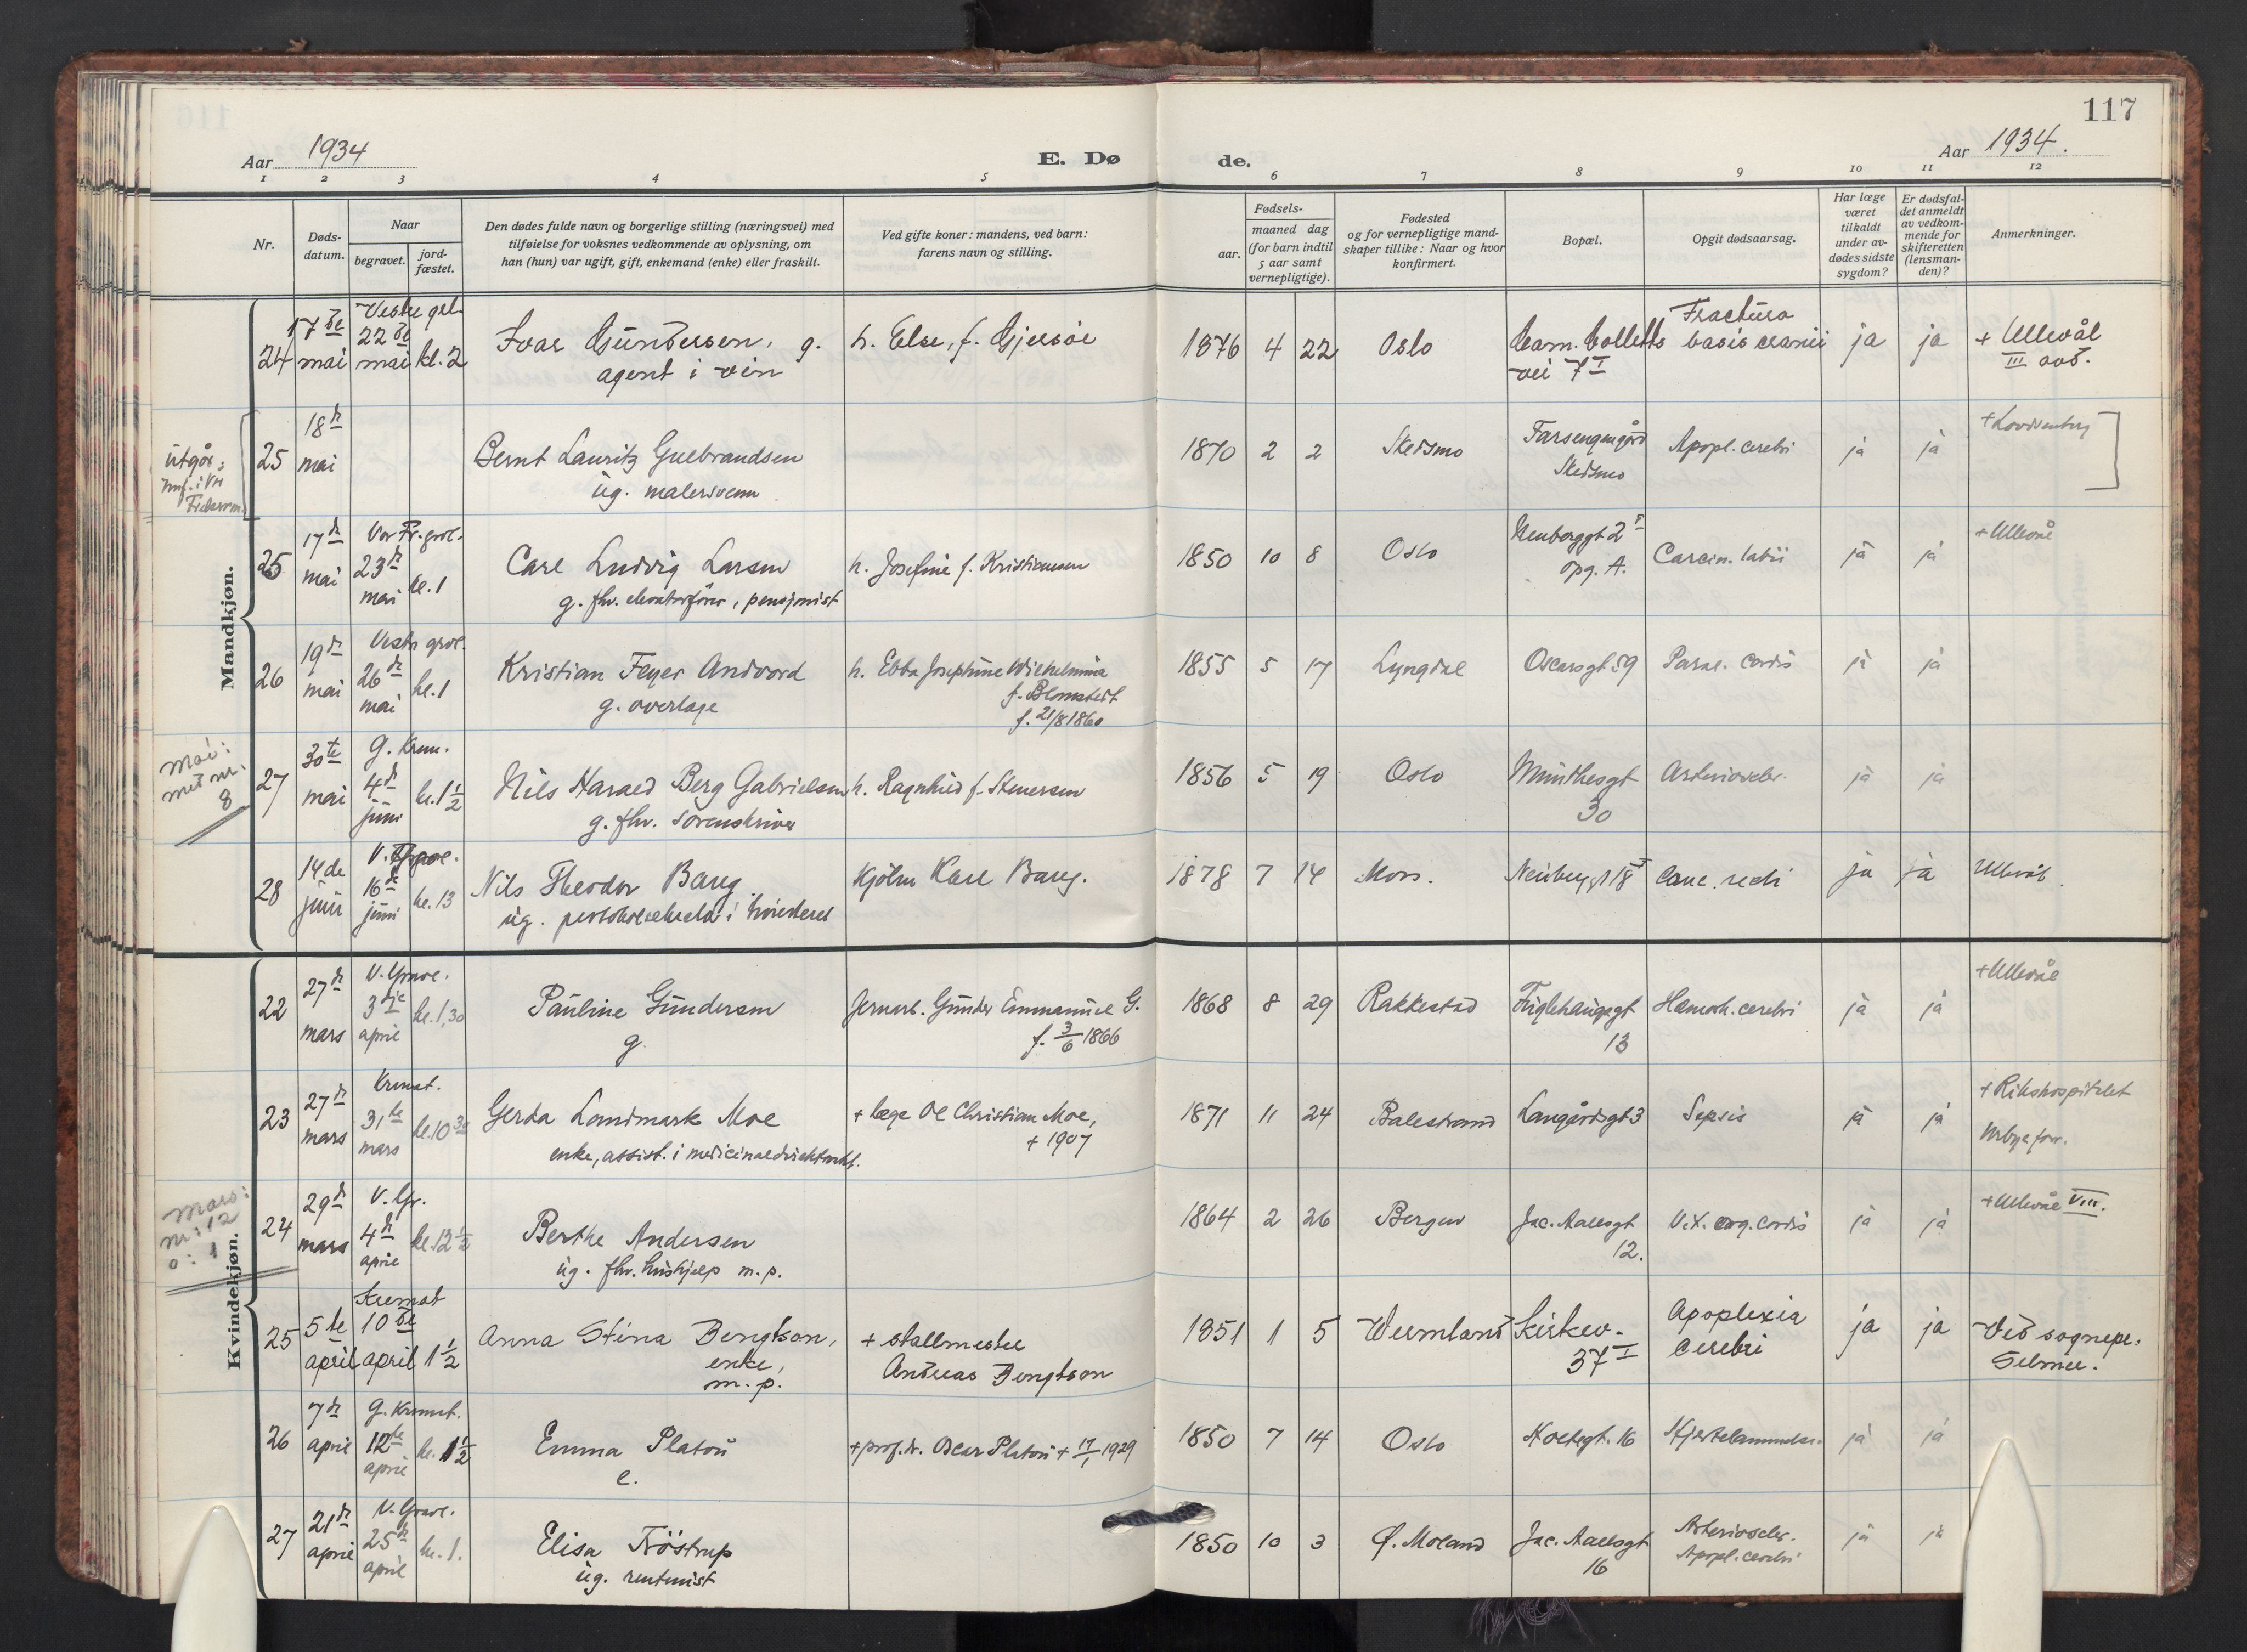 117
Aar 1934
E. Dø
de.
Aar 1934.
1 2 3 4 5 6 7 8 9 10 11 12
Nr.
Døds-
datum.
Naar
begravet.
jord-
fæstet.
Den dødes fulde navn og borgerlige stilling (næringsvei) med
tilføielse for voksnes vedkommende av oplysning, om
han (hun) var ugift, gift, enkemand (enke) eller fraskilt.
Ved gifte koner: mandens, ved barn:
farens navn og stilling.
Fødsels-
aar.
maaned dag
(for barn indtil
5 aar samt
vernepligtige).
Fødested
og for vernepligtige mand-
skaper tillike: Naar og hvor
konfirmert.
Bopæl.
Opgit dødsaarsag.
Har læge
været
tilkaldt
under av-
dødes sidste
sygdom?
Er dødsfal-
det anmeldt
av vedkom-
mende for
skifteretten
(lensman-
den)?
Anmerkninger.
Mandkjøn.
24 17de mai
22de mai kl. 2
Ivar Gundersen, g.
agent i vin
h. Else, f. Gjersøe
1876 4 22 Oslo
Cam. Colletts
vei 7 I
Fractura
basis cranii
ja ja
+ Ullevål
III avd.
utgår;
25 18de mai
Bernt Lauritz Gulbrandsen
ug. malersvenn
1870 2 2 Skedsmo
Skedsmo
Apopl. cerebri
ja ja
+ Lovisenberg
25 17de mai
Vor Fr. grvl.
23de mai kl. 1
Carl Ludvig Larsen
g. fhv. elevatorfører, pensjonist
h. Josefine f. Kristiansen
1850 10 8 Oslo
Neuberggt 2
Opg. A.
Carcin. labii
ja ja
+ Ullevål
26 19de mai
Vestre grvl.
26de mai kl. 1
Kristian Feyer Andvord
g. overlæge
h. Ebba Josephine Wilhelmina
f. Blomstedt
f. 21/8 1860
1855 5 17 Lyngdal
Oscarsgt 59
Paral. cordis
ja ja
Mai:
med nr.
8
27 30te mai
G. Krem.
4de juni kl. 1 1/2
Nils Harald Berg Gabrielsen
g. fhv. sorenskriver
h. Ragnhild f. Stenersen
1856 5 19 Oslo
Munthesgt
30
Arterioscler.
ja ja
28 14de juni
16de juni kl. 13
Nils Theodor Bang
ug. protokollsekretær i høiesterett
Kjøbm Karl Bang.
1878 7 14 Moss.
Neuberggt 18
Canc. recti
ja ja
Ullevål
Kvindekjøn.
22 27de mars
V. Gravl.
3dje april kl. 1,30
Pauline Gundersen
g.
Jernarb. Gunder Emmanuel G.
f. 3/6 1866
1868 8 29 Rakkestad
Fuglehauggt
13
Hæmorh. cerebri
ja ja
+ Ullevål
23 27de mars
Kremat.
31te mars kl. 10 30
Gerda Landmark Moe
enke, assist. i medicinaldirektoratet.
+ læge Ole Christian Moe,
+ 1907
1871 11 24 Balestrand
Langårdsgt 3
Sepsis
ja ja
+ Rikshospitalet
Mars:
nr: 12
o: 1
24 29de mars
V. Gr.
4de april kl. 12 1/2
Berthe Andersen
ug. fhv. hushjelp m.p.
1864 2 26 Bergen
Jac. Aallsgt
12.
Vit. org. cordis
ja ja
+ Ullevål VIII.
25 5te april
Kremat
10de april 1 1/2
Anna Stina Bengtson,
enke,
m.p.
+ stallmester
Andreas Bengtson
1851 1 5 Wermland
Kirkev.
37 I
Apoplexia
cerebri
ja ja
Ved sognepr.
Selmer.
26 7de april
G. Kremat.
12te april kl. 1 1/2
Emma Platou
e.
+ prof. dr. Oscar Platou + 17/1 1929
1850 7 14 Oslo
Holtegt. 16
Hjertelammelse.
ja ja
27 21de april
V. Gravl.
25de april kl. 1.
Elisa Tröstrup
ug. rentenist
1850 10 3 Ø. Moland
Jac. Aallsgt
16
Arterioscler.
Apopl. cerebri
ja ja